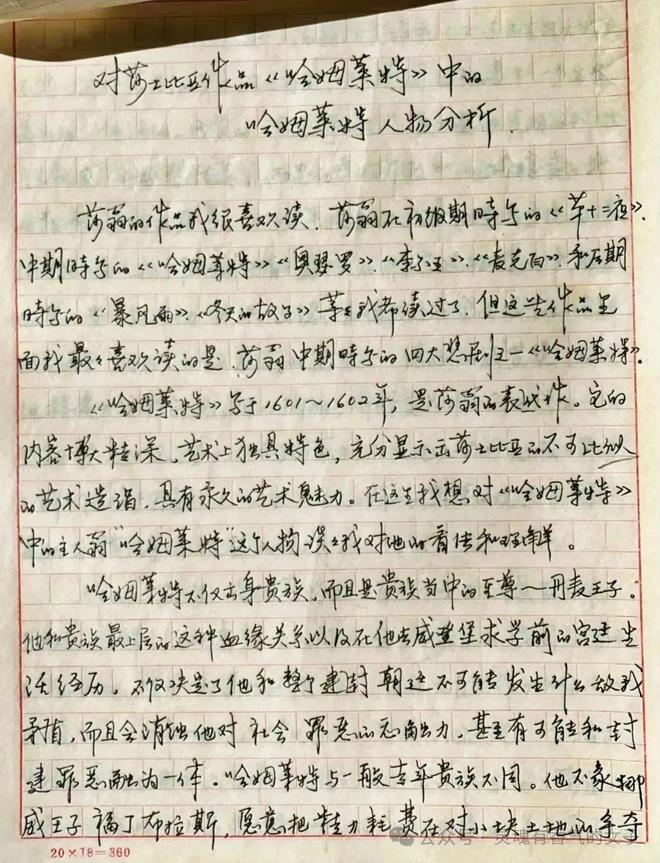 对莎士比亚作品《哈姆莱特》中的
哈姆莱特人物分析.
莎翁的作品我很喜欢读.莎翁在初级期时写的《《第十二夜》.
中期时写的《《哈姆莱特》《奥瑟罗》.《李尔王》.《麦克白》.和后期
时写的《暴风雨》.《冬天的故事》等々我都读过了.但这些作品里
面我最々喜欢读的是.莎翁中期时写的四大悲剧之一《《哈姆莱特》.
《《哈姆莱特》写于1601～1602年,是莎翁的代表作。它的
内容博大精深、艺术上独具特色,充分显示出莎士比亚的不可比似
的艺术造诣,具有永久的艺术魅力。在这里我想对《《哈姆莱特》》
中的主人翁"哈姆莱特"这个人物谈々我对他的看法和理解。
哈姆莱特不仅出身贵族,而且是贵族当中的至尊——丹麦王子。
他和贵族最上层的这种血缘关系以及在他去威登堡求学前的宫廷生
活经历.不仅决定了他和整个建封朝廷不可能发生什么敌我
矛盾,而且会消蚀他对社会罪恶的洞察力,甚至有可能和封
建罪恶融为一体.哈姆莱特与一般青年贵族不同。他不象挪
威王子福丁布拉斯,愿意把精力耗费在对小块土地的争夺
20×18=360
公众号·灵魂有香气的女子